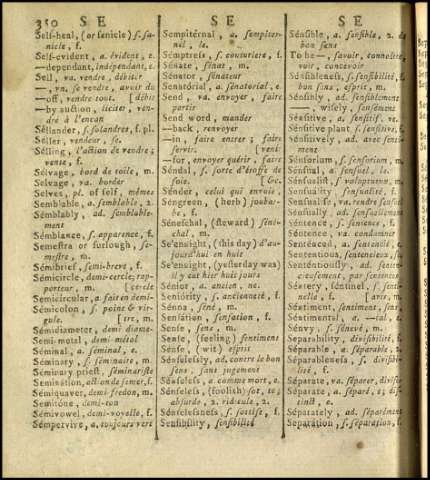 350 S E
S E
S E
Self-heal, (or senicle) s. sa-
nicle, f.
Self-evident, a. évident, e.
—dependant, indépendant, e.
Sell, va. vendre, débiter
—, vn. se vendre, avoir du
—off, vendre tout. [débit
—by auction, liciter, ven-
dre à l'encan
Séller, vendeur, se.
Sélling, l'action de vendre;
vente, f.
Sélvage, bord de toile, m.
Selvage, va. border
Selves, pl. of self, mêmes
Sémblable, a. semblable, 2.
Sémblably, ad. semblable-
ment
Sémblance, s. apparence, f.
Semestra or furlough, se-
mestre, m.
Sémibrief, semi-breve, f.
Sémicircle, demi-cercle; rap-
porteur, m. [cercle
Semicircular, a. fait en demi-
Sémicolon, s. point & vir-
gule.
Sémidiameter, demi diame-
Semi-metal, demi-métal
Séminal, a. séminal, e.
Séminary, s. séminaire, m.
Séminary priest, séminariste
Semination, action de semer, f.
Sémiquaver, demi-fredon, m.
Sémitone, demi-ton
Sémivowel, demi-voyelle, f.
Sémpervive, a. toujours vert
Sempitérnal, a. sempiter-
nel, le.
Sémptress, s. couturiere, f.
Sénate, sénat, m.
Sénator, sénateur
Senatórial, a. sénatorial, e.
Send, va. envoyer, faire
partir
Send word, mander
—back, renvoyer
—in, faire entrer; faire
servir. [venir
—for, envoyer quérir, faire
Séndal, s. sorte d'étoffe de
soie. [&c.
Sénder, celui qui envoie,
Sengreen, (herb) joubar-
be, f.
Séneschal, (steward) séné-
chal, m.
Se'ensight, (this day) d'au-
jourd'hui en huit
Se'ensight, (yesterday was)
il y eut hier huit jours
Sénior, a. ancien, ne.
Senióríty, s. ancienneté, f.
Sénna, séné, m.
Sensátion, sensation, f.
Sense, sens, m.
Sense, (feeling) sentiment
Sense, (wit) esprit
Sénselessly, ad. contre le bon
sens, sans jugement
Sénseless, a. comme mort, e.
Sénseless, (foolish) sot, te;
absurde, 2. ridicule, 2.
Sénselessness, s. sottise, f.
Sensibílity, sensibilité
Sénsible, a. sensible, 2. de
bon sens
To be—, savoir, connoître,
voir, concevoir
Sénsibleness, s. sensibilité, f.
bon sens, esprit, m.
Sénsibly, ad. sensiblement
—, wisely, sensément
Sénsitive, a. sensitif, ve.
Sénsitive plant, sensitive, f.
Sénsitively, ad. avec senti-
ment
Sensórium, s. sensorium, m.
Sénsual, a. sensuel, le.
Sénsualist, s. voluptueux, m.
Sensuálity, sensualité, f.
Sénsualise, va. rendre sensuel
Sénsually, ad. sensuellement
Séntence, s. sentence, f.
Séntence, va. condamner
Senténtious, sentencieux,
Senténtiously, ad. senten-
cieusement, par sentences
Séntery, séntinel, s. senti-
nelle, f. [avis, m.
Séntiment, sentiment, sens,
Sentimental, e. —tal, e.
Sénvy, s. sénevé, m.
Separability, divisibilité, f.
Séparable, a. séparable, 2.
Séparableness, s. divisibi-
lité, f.
Séparate, va. séparer, diviser
Séparate, a. séparé, e; dis-
tinct, e.
Séparately, ad. séparément
Separátion, s. séparation, f.